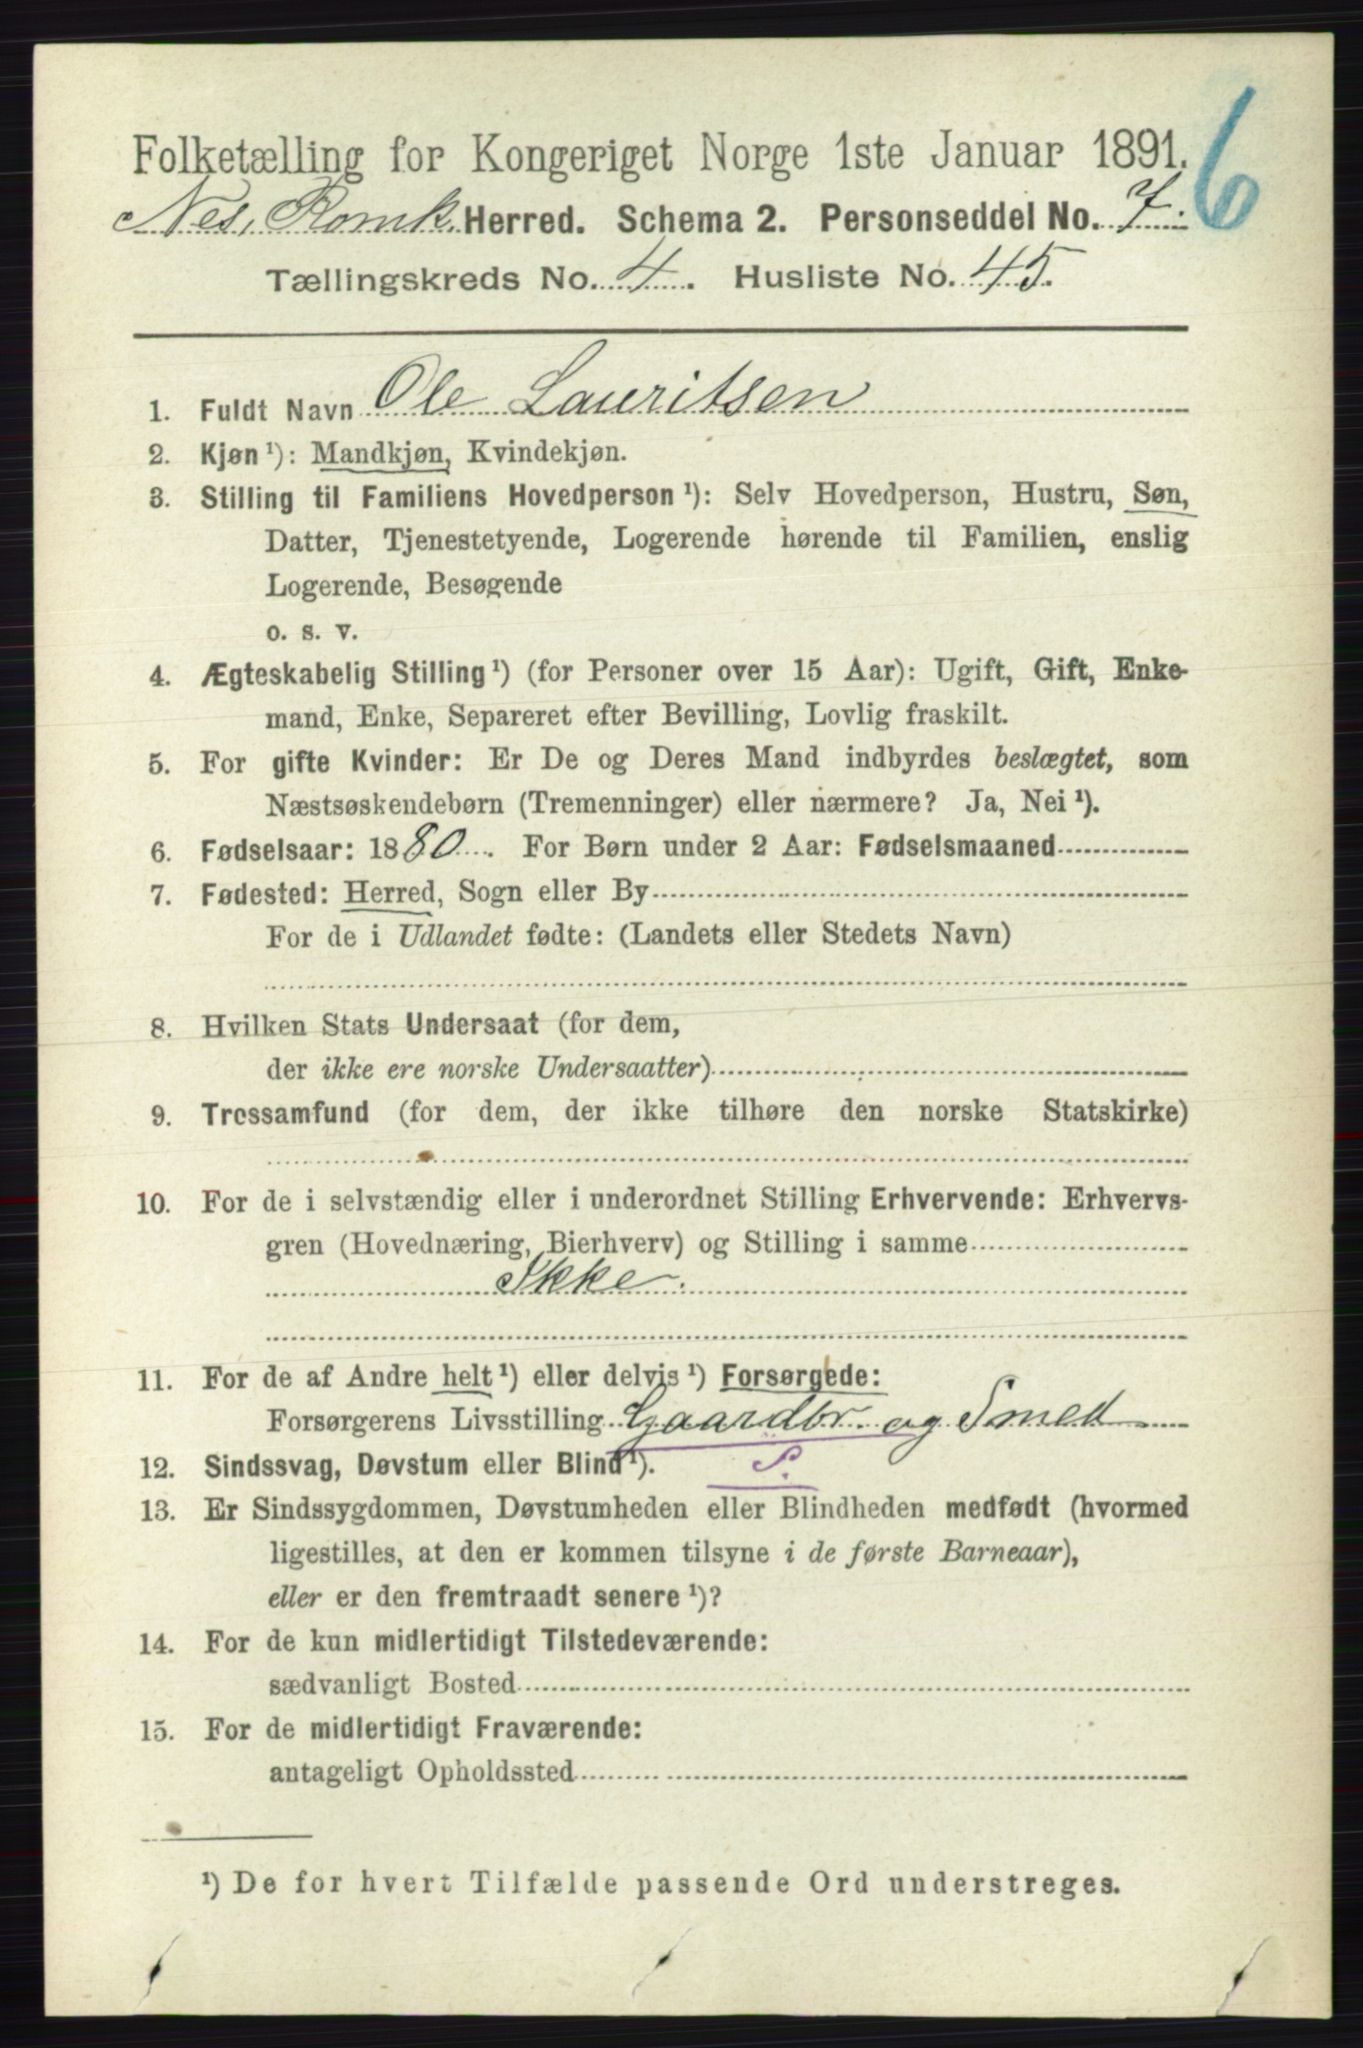 6
Folketælling for Kongeriget Norge 1ste Januar 1891.
Nes, Romk. Herred. Schema 2. Personseddel No. 7.
Tællingskreds No. 4. Husliste No. 45.
1. Fuldt Navn Ole Lauritsen
2. Kjøn ¹): Mandkjøn, Kvindekjøn.
3. Stilling til Familiens Hovedperson ¹): Selv Hovedperson, Hustru, Søn,
Datter, Tjenestetyende, Logerende hørende til Familien, enslig
Logerende, Besøgende
o. s. v.
4. Ægteskabelig Stilling ¹) (for Personer over 15 Aar): Ugift, Gift, Enke-
mand, Enke, Separeret efter Bevilling, Lovlig fraskilt.
5. For gifte Kvinder: Er De og Deres Mand indbyrdes beslægtet, som
Næstsøskendebørn (Tremenninger) eller nærmere? Ja, Nei ¹).
6. Fødselsaar: 1880. For Børn under 2 Aar: Fødselsmaaned
7. Fødested: Herred, Sogn eller By
For de i Udlandet fødte: (Landets eller Stedets Navn)
8. Hvilken Stats Undersaat (for dem,
der ikke ere norske Undersaatter)
9. Trossamfund (for dem, der ikke tilhøre den norske Statskirke)
10. For de i selvstændig eller i underordnet Stilling Erhvervende: Erhvervs-
gren (Hovednæring, Bierhverv) og Stilling i samme
Ikke.
11. For de af Andre helt ¹) eller delvis ¹) Forsørgede:
Forsørgerens Livsstilling Gaardbr. og Smed
12. Sindssvag, Døvstum eller Blind ¹). S.
13. Er Sindssygdommen, Døvstumheden eller Blindheden medfødt (hvormed
ligestilles, at den er kommen tilsyne i de første Barneaar),
eller er den fremtraadt senere ¹)?
14. For de kun midlertidigt Tilstedeværende:
sædvanligt Bosted
15. For de midlertidigt Fraværende:
antageligt Opholdssted
¹) De for hvert Tilfælde passende Ord understreges.